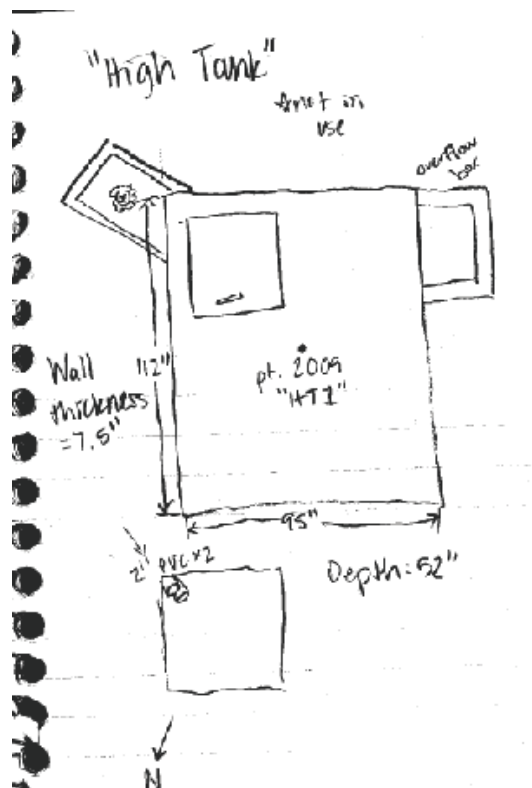 "High Tank"
*not in
use
overflow
box
Wall
thickness
=7.5"
112"
pt. 2009
"HT1"
95"
2" PVC x2
Depth: 52"
N